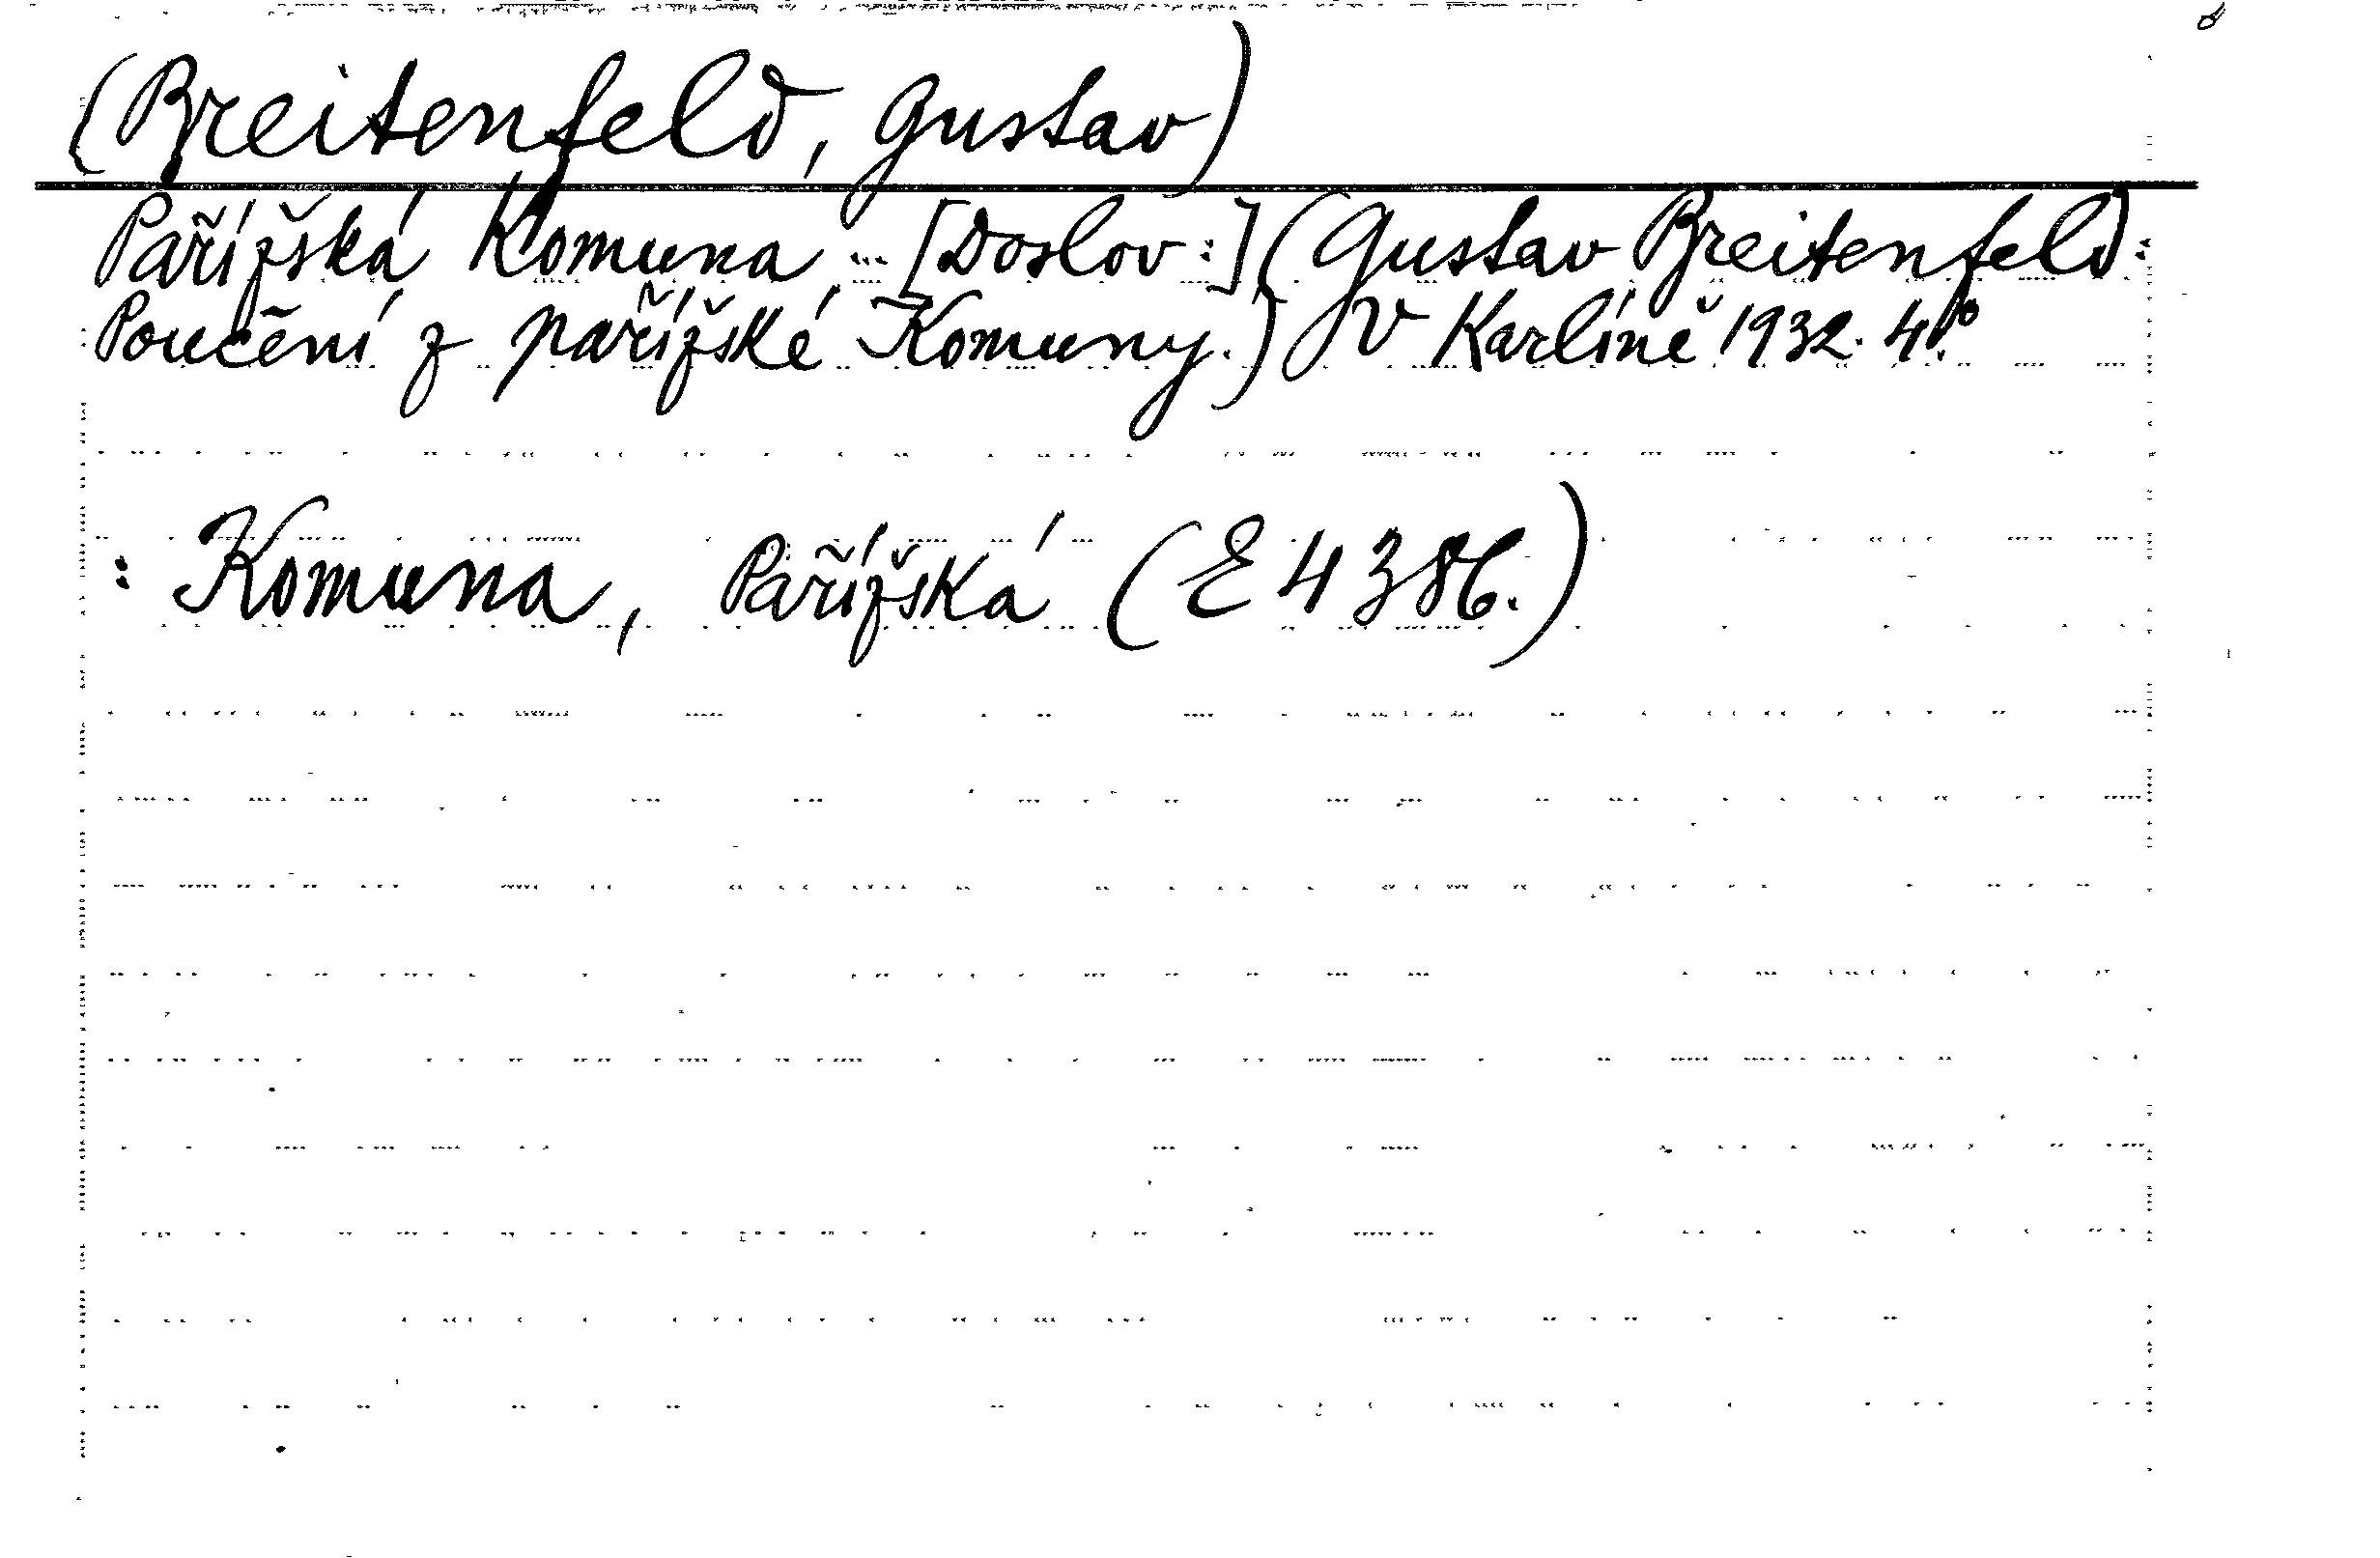 (Breitenfeld, Gustav)
Pařížská Komuna ... [Doslov:] (Gustav Breitenfeld:
Poučení z pařížské Komuny.) V Karlíně 1932. 4°.
: Komuna, Pařížská (E 4386.)